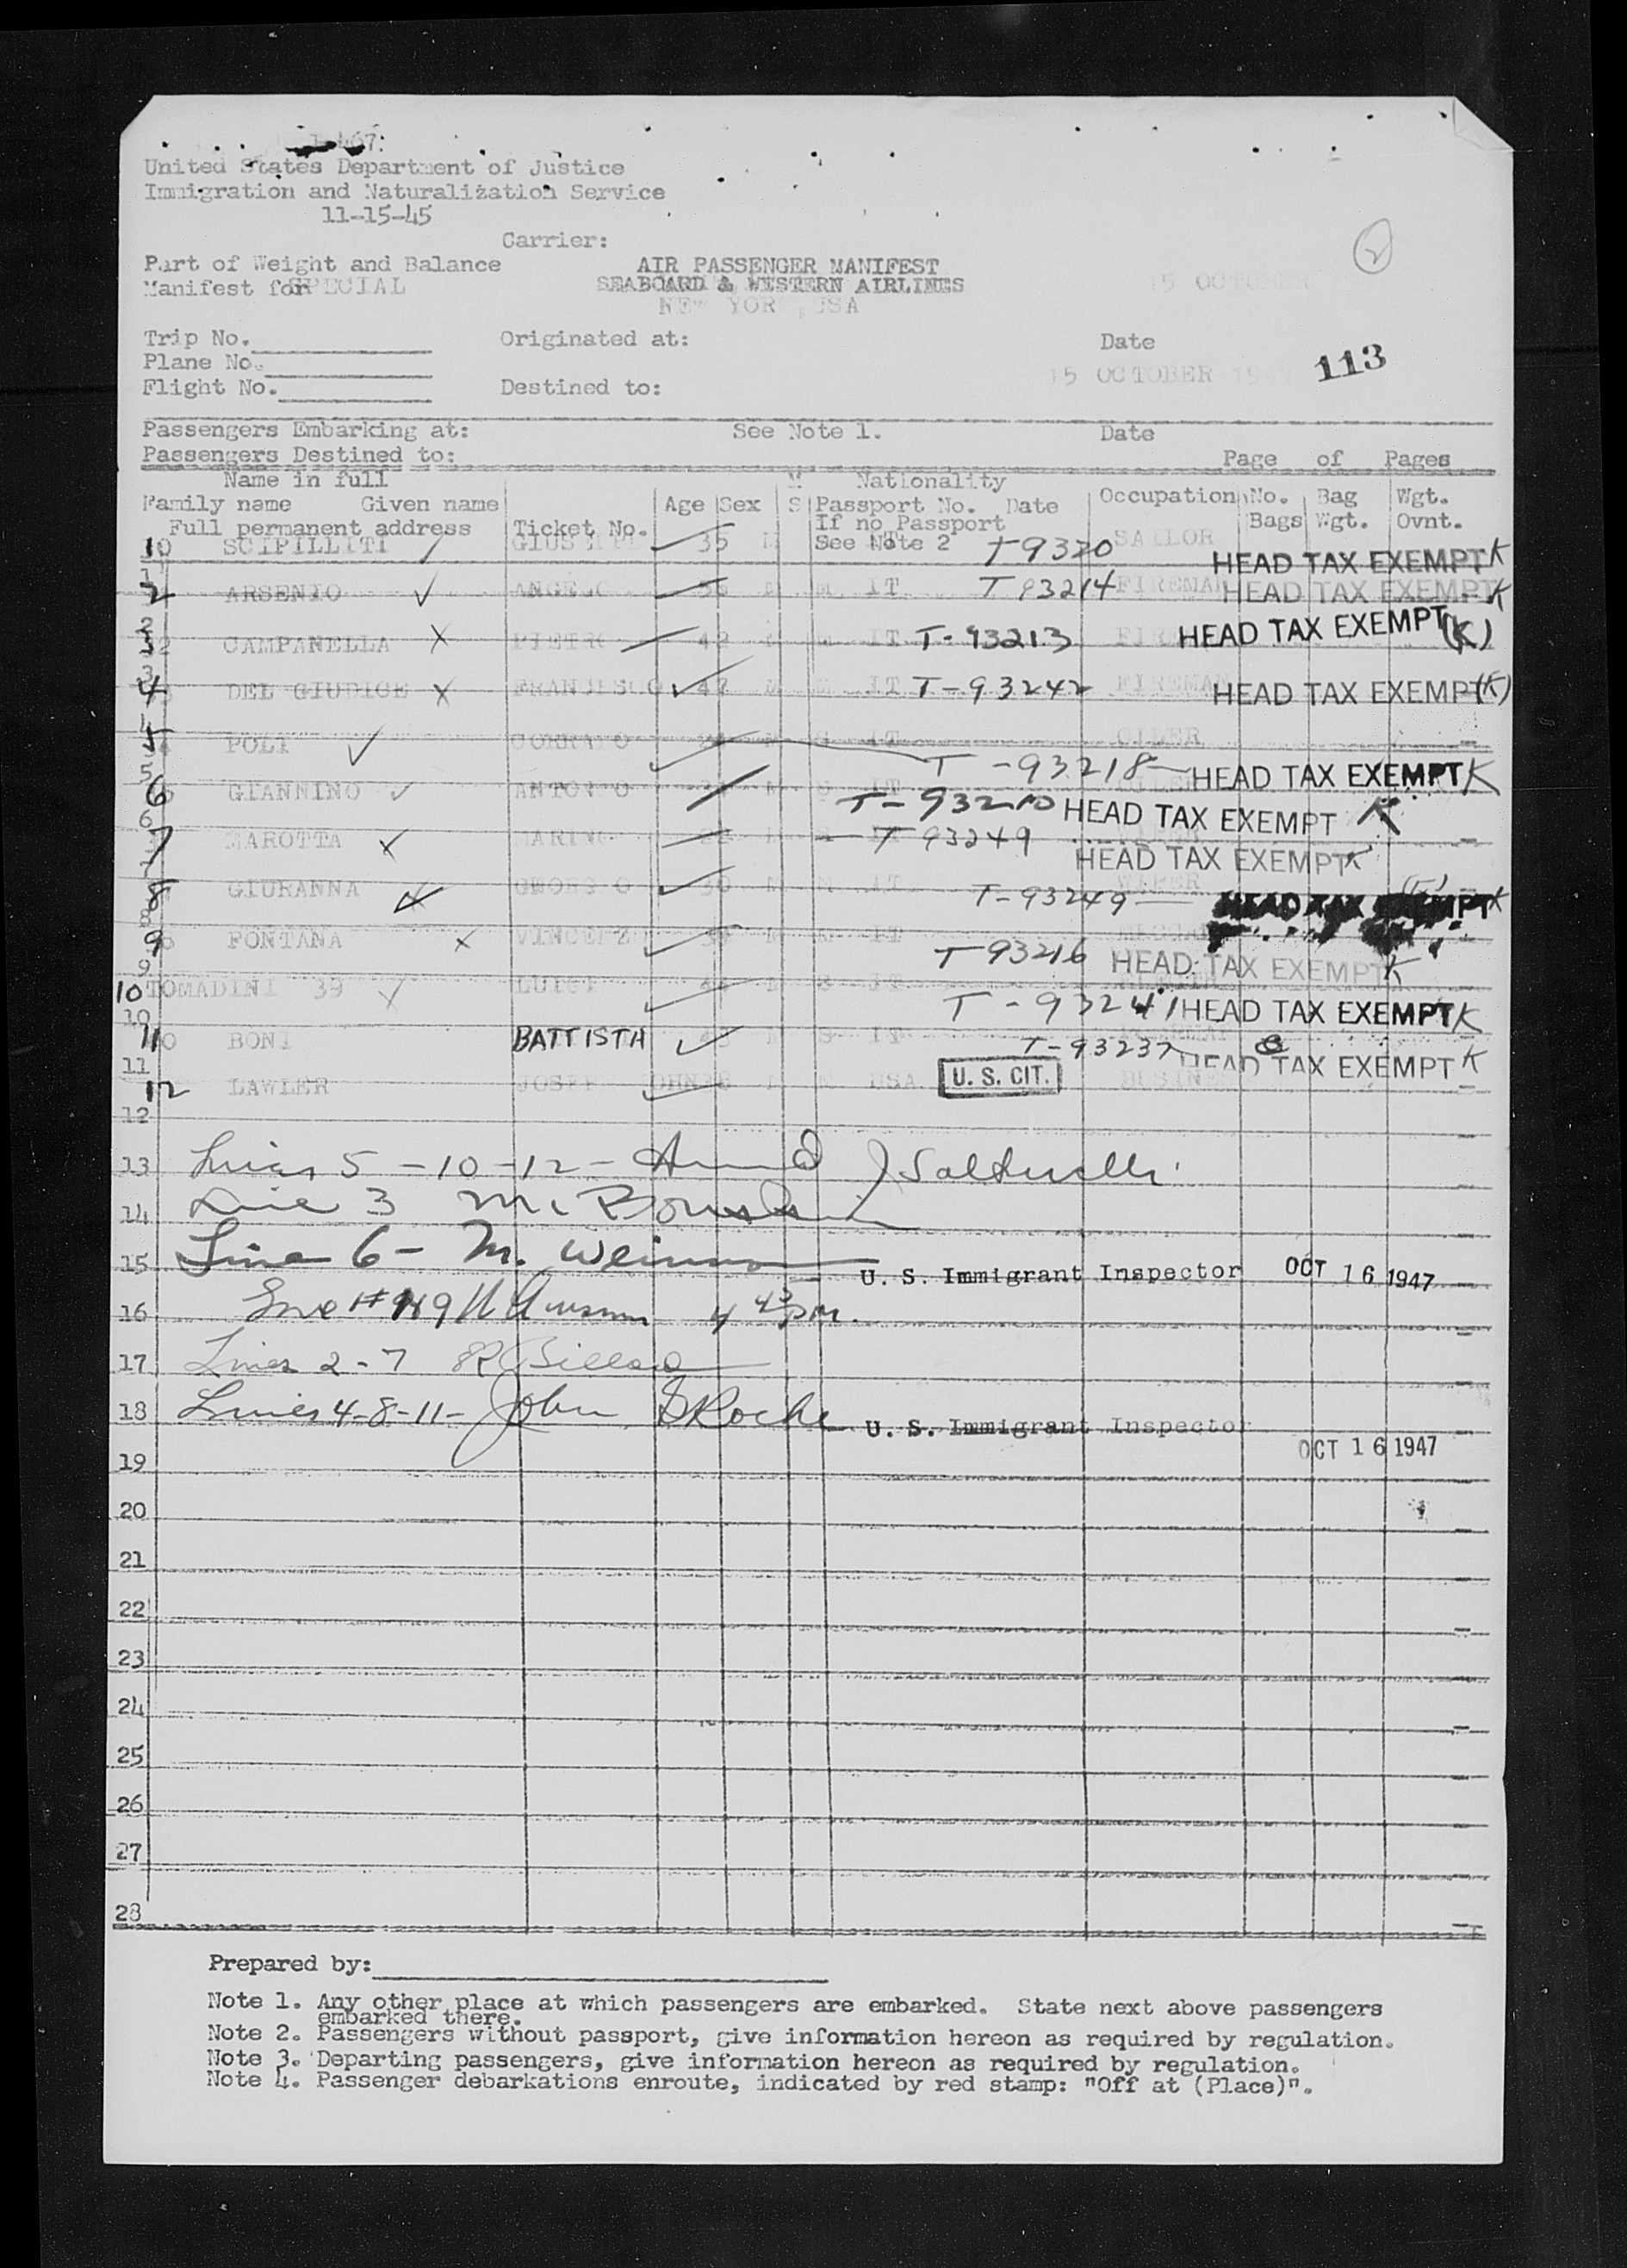 United States Department of Justice
Immigration and Naturalization Service
11-15-45
Carrier:
Part of Weight and Balance
AIR PASSENGER MANIFEST
Manifest for SPECIAL
SEABOARD & WESTERN AIRLINES
15 OCTOBER
NEW YORK, USA
2
Trip No.
Originated at:
Date
Plane No.
15 OCTOBER
113
Flight No.
Destined to:
Passengers Embarking at:
See Note 1.
Date
Passengers Destined to:
Page of Pages
Name in full
M
Nationality
Family name Given name
Age Sex S Passport No. Date Occupation No. Bag Wgt.
Full permanent address Ticket No. If no Passport Bags Wgt. Ovnt.
See Note 2
SCIPILLITI GIUSEPPE 35 M IT T9320 SAILOR HEAD TAX EXEMPT K
2 ARSENIO ANGELO M M IT T 93214 FIREMAN HEAD TAX EXEMPT K
3 CAMPANELLA PIETRO 42 M M IT T-93213 HEAD TAX EXEMPT (K)
4 DEL GIUDICE FRANCESCO 47 M M IT T-93242 FIREMAN HEAD TAX EXEMPT (K)
5 POLI CORRADO M IT OILER T-93218 HEAD TAX EXEMPT K
6 GIANNINO ANTONIO M IT T-93210 HEAD TAX EXEMPT K
7 MAROTTA MARINO T 93249 HEAD TAX EXEMPT K
8 GIURANNA GEORGIO 30 M M IT T-93249 WIPER HEAD TAX EXEMPT K
9 FONTANA VINCENZO M IT T 93216 HEAD TAX EXEMPT K
10 TOMADINI 39 LUIGI M IT T-93241 HEAD TAX EXEMPT K
11 BONI BATTISTA M S IT T-93237 HEAD TAX EXEMPT K
12 LAWLER JOSEPH JOHN M USA U. S. CIT.
12
13 Lines 5-10-12-
14 Line 3
15 Line 6 - M. U. S. Immigrant Inspector OCT 16 1947
16 4 45 PM.
17 Lines 2-7
18 Lines 4-8-11- John Roche U. S. Immigrant Inspector
OCT 16 1947
19
20
21
22
23
24
25
26
27
28
Prepared by:
Note 1. Any other place at which passengers are embarked. State next above passengers
embarked there.
Note 2. Passengers without passport, give information hereon as required by regulation.
Note 3. Departing passengers, give information hereon as required by regulation.
Note 4. Passenger debarkations enroute, indicated by red stamp: "Off at (Place)".